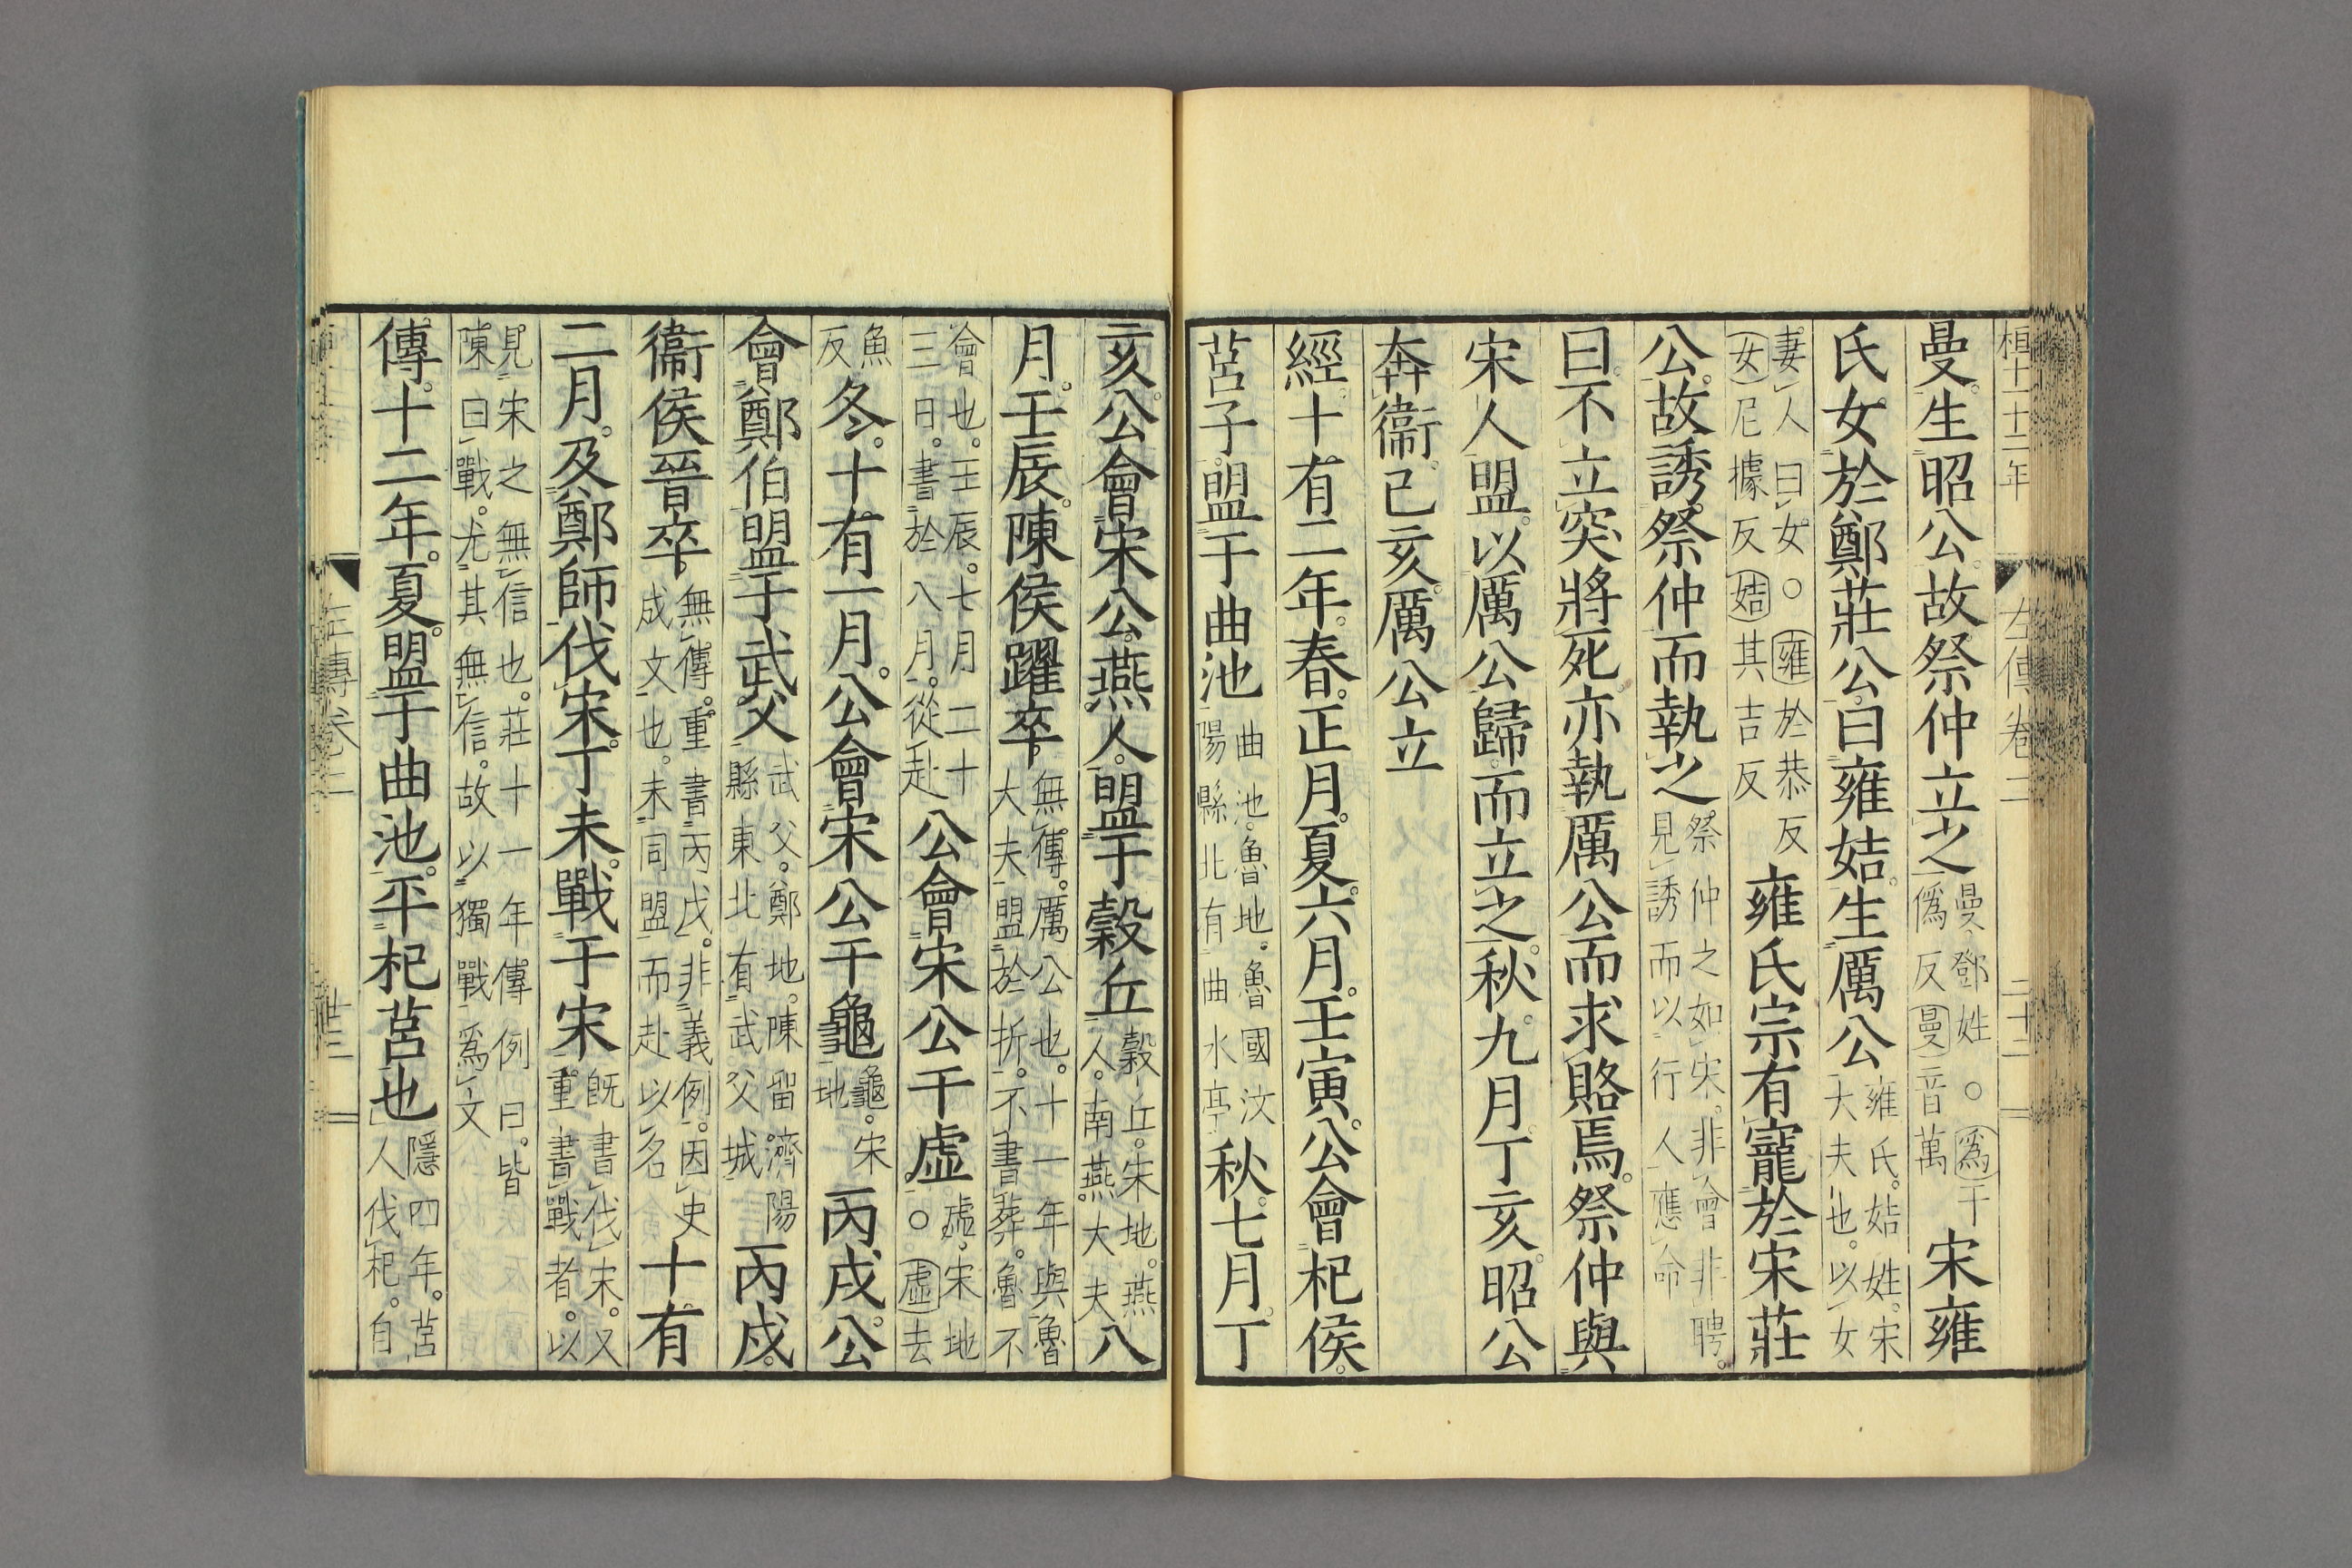 桓十一十二年
左傳卷二
二十二
曼生昭公故祭仲立之曼鄧姓○爲于僞反曼音萬宋雍
氏女於鄭莊公曰雍姞生厲公雍氏姞姓宋大夫也以女
妻人曰女○雍於恭反女尼據反姞其吉反雍氏宗有寵於宋莊
公故誘祭仲而執之祭仲之如宋非會非聘見誘而以行人應命
曰不立突將死亦執厲公而求賂焉祭仲與
宋人盟以厲公歸而立之秋九月丁亥昭公
奔衞己亥厲公立
經十有二年春正月夏六月壬寅公會杞侯
莒子盟于曲池曲池魯地魯國汶陽縣北有曲水亭秋七月丁
亥公會宋公燕人盟于穀丘穀丘宋地燕人南燕大夫八
月壬辰陳侯躍卒無傳厲公也十一年與魯大夫盟於折不書葬魯不
會也壬辰七月二十三日書於八月從赴公會宋公于虛虛宋地○虛去
魚反冬十有一月公會宋公于龜龜宋地丙戌公
會鄭伯盟于武父武父鄭地陳留濟陽縣東北有武父城丙戌
衞侯晉卒無傳重書丙戌非義例因史成文也未同盟而赴以名十有
二月及鄭師伐宋丁未戰于宋既書伐宋又重書戰者以
見宋之無信也莊十一年傳例曰皆陳曰戰尤其無信故以獨戰爲文
傳十二年夏盟于曲池平杞莒也隱四年莒人伐杞自
左傳卷二